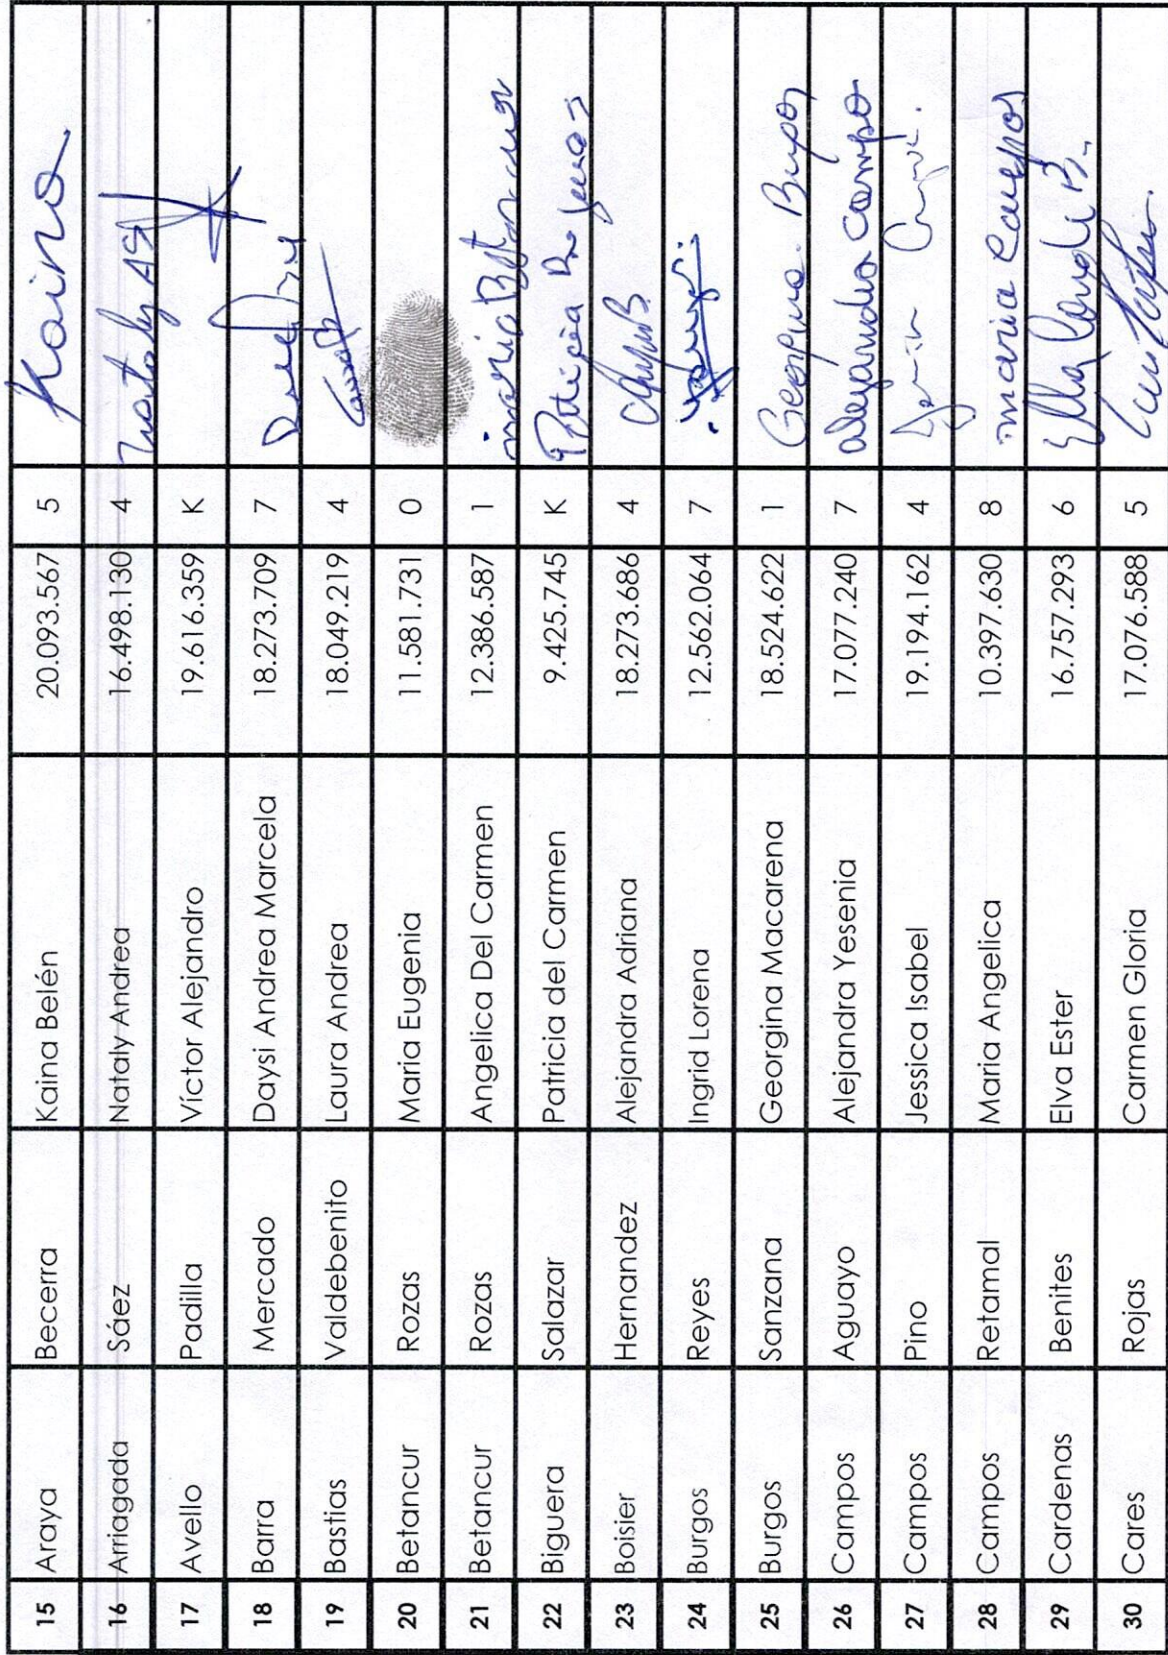 15 Araya Becerra Kaina Belén 20.093.567 5 Kaina
16 Arriagada Sáez Nataly Andrea 16.498.130 4 Nataly AS
17 Avello Padilla Víctor Alejandro 19.616.359 K
18 Barra Mercado Daysi Andrea Marcela 18.273.709 7
19 Bastias Valdebenito Laura Andrea 18.049.219 4
20 Betancur Rozas Maria Eugenia 11.581.731 0
21 Betancur Rozas Angelica Del Carmen 12.386.587 1
22 Biguera Salazar Patricia del Carmen 9.425.745 K
23 Boisier Hernandez Alejandra Adriana 18.273.686 4
24 Burgos Reyes Ingrid Lorena 12.562.064 7
25 Burgos Sanzana Georgina Macarena 18.524.622 1
26 Campos Aguayo Alejandra Yesenia 17.077.240 7 alejandra campo
27 Campos Pino Jessica Isabel 19.194.162 4
28 Campos Retamal Maria Angelica 10.397.630 8 maria Campos
29 Cardenas Benites Elva Ester 16.757.293 6
30 Cares Rojas Carmen Gloria 17.076.588 5